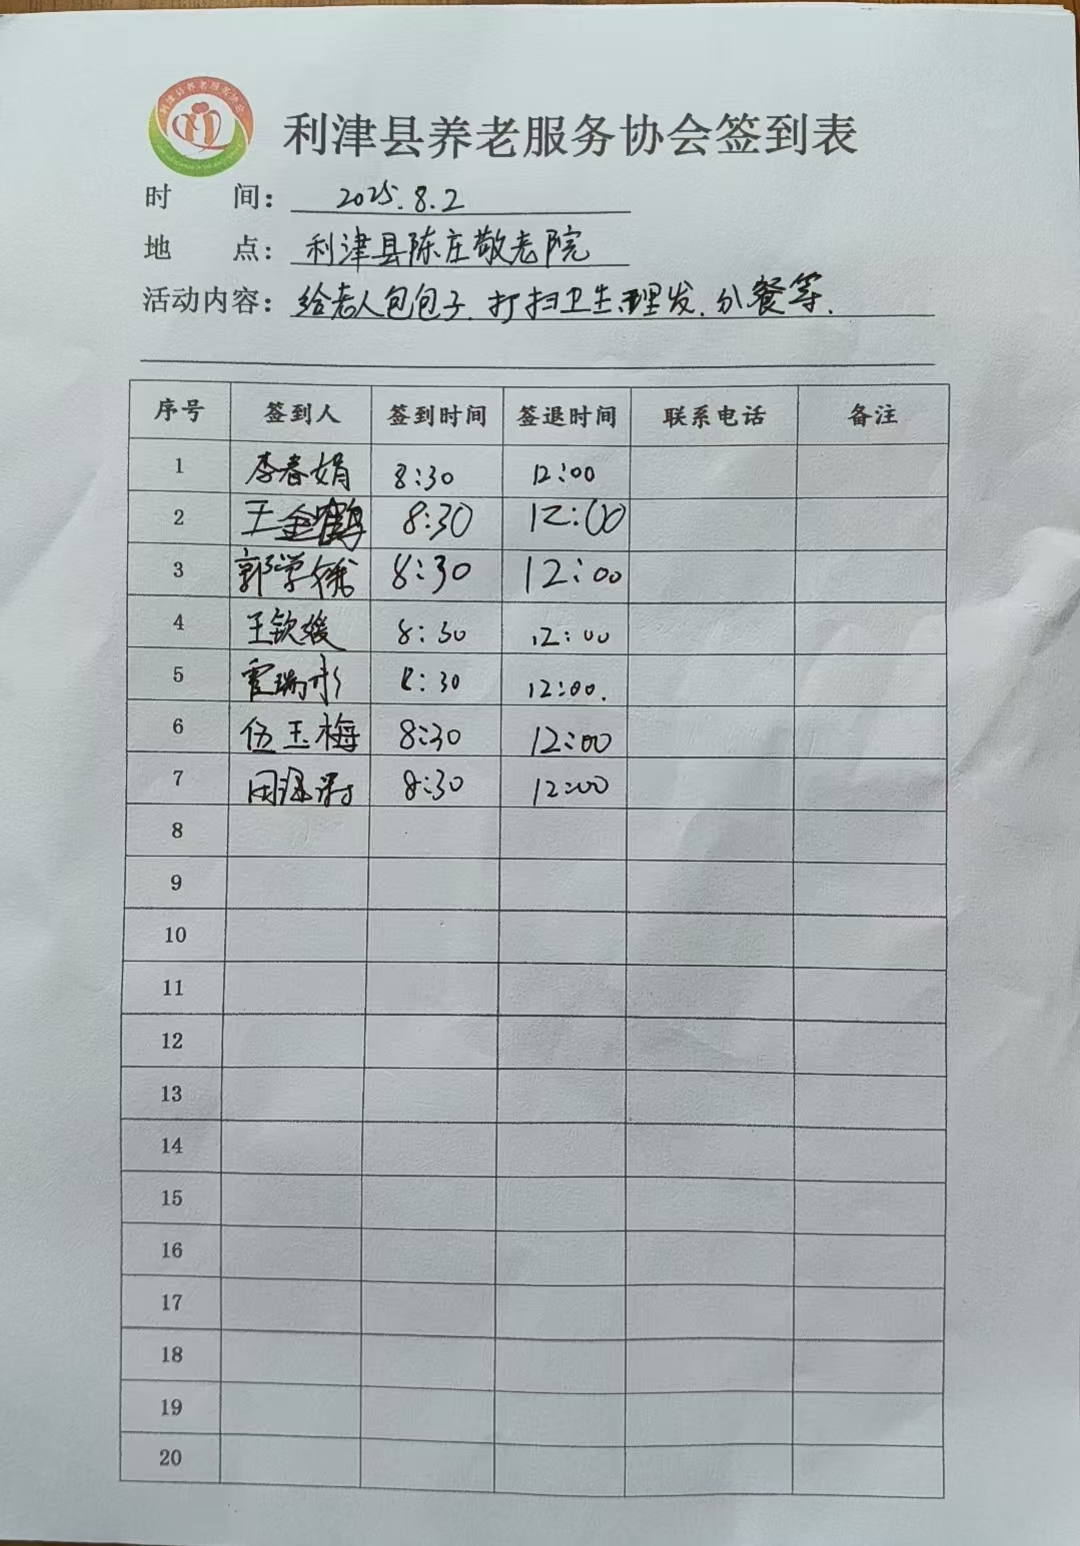 利津县养老服务协会
利津县养老服务协会签到表
时 间: 2025.8.2
地 点: 利津县陈庄敬老院
活动内容: 给老人包包子、打扫卫生、理发、分餐等.
序号 签到人 签到时间 签退时间 联系电话 备注
1 李春娟 8:30 12:00
2 王金鹤 8:30 12:00
3 郭学 8:30 12:00
4 王钦媛 8:30 12:00
5 霍瑞 8:30 12:00.
6 伍玉梅 8:30 12:00
7 8:30 12:00
8
9
10
11
12
13
14
15
16
17
18
19
20